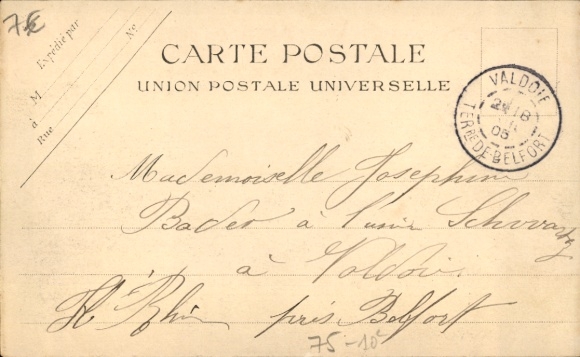 7€
Expédié par
M
à
Rue
No
CARTE POSTALE
UNION POSTALE UNIVERSELLE
VALDOIE
TERRE DE BELFORT
Mademoiselle Josephine
Bader à l'usine Schwartz
à Valdoie
Ht Rhin près Belfort
75-10e